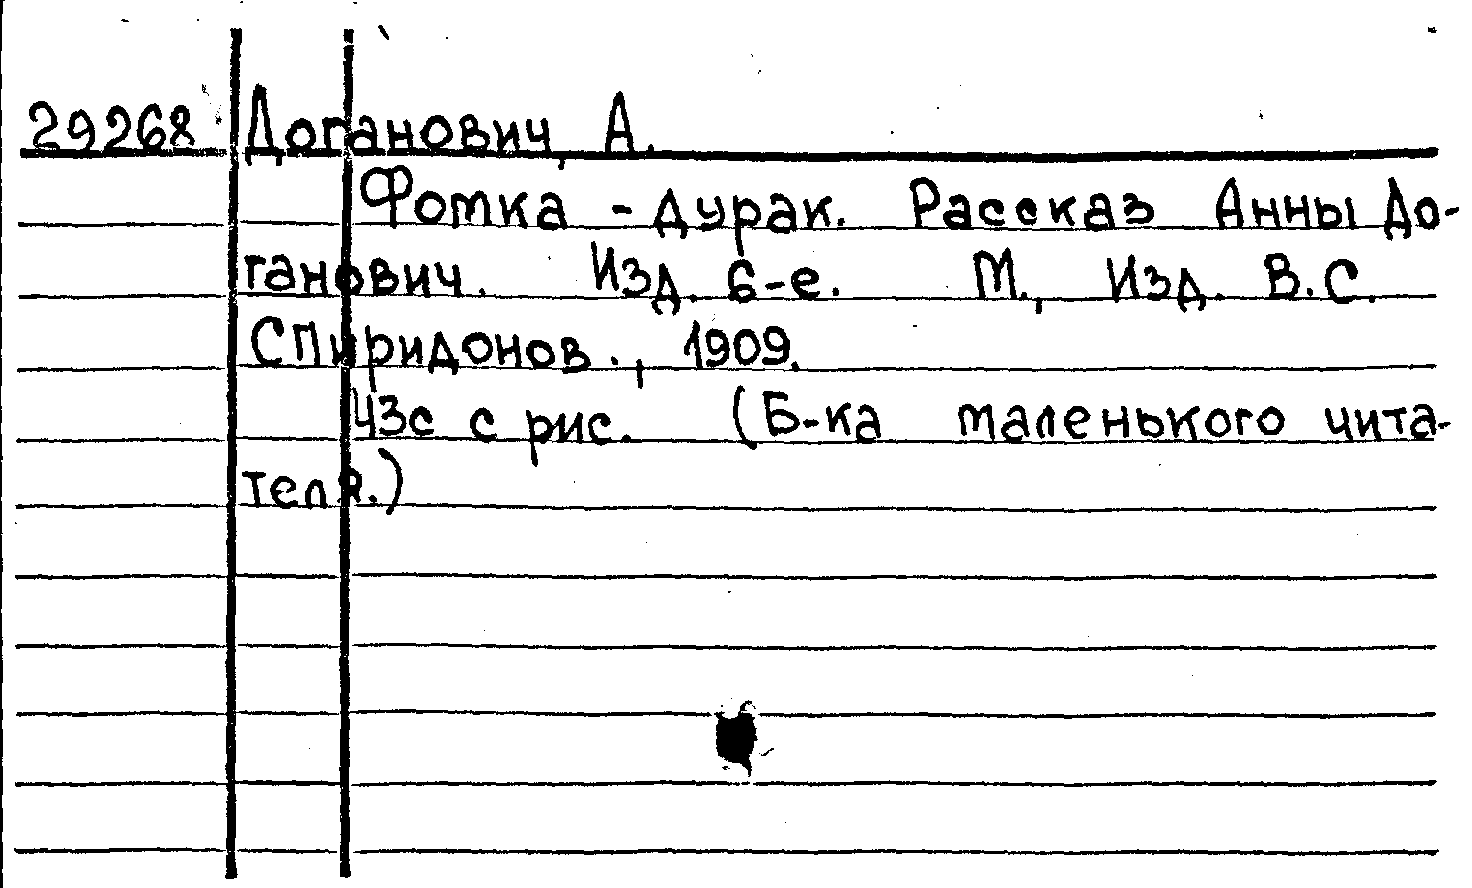 29268 Доганович, А.
Фомка - дурак. Рассказ Анны До-
ганович. Изд. 6-е. М., Изд. В.С.
Спиридонов., 1909.
43с с рис. (Б-ка маленького чита-
теля.)